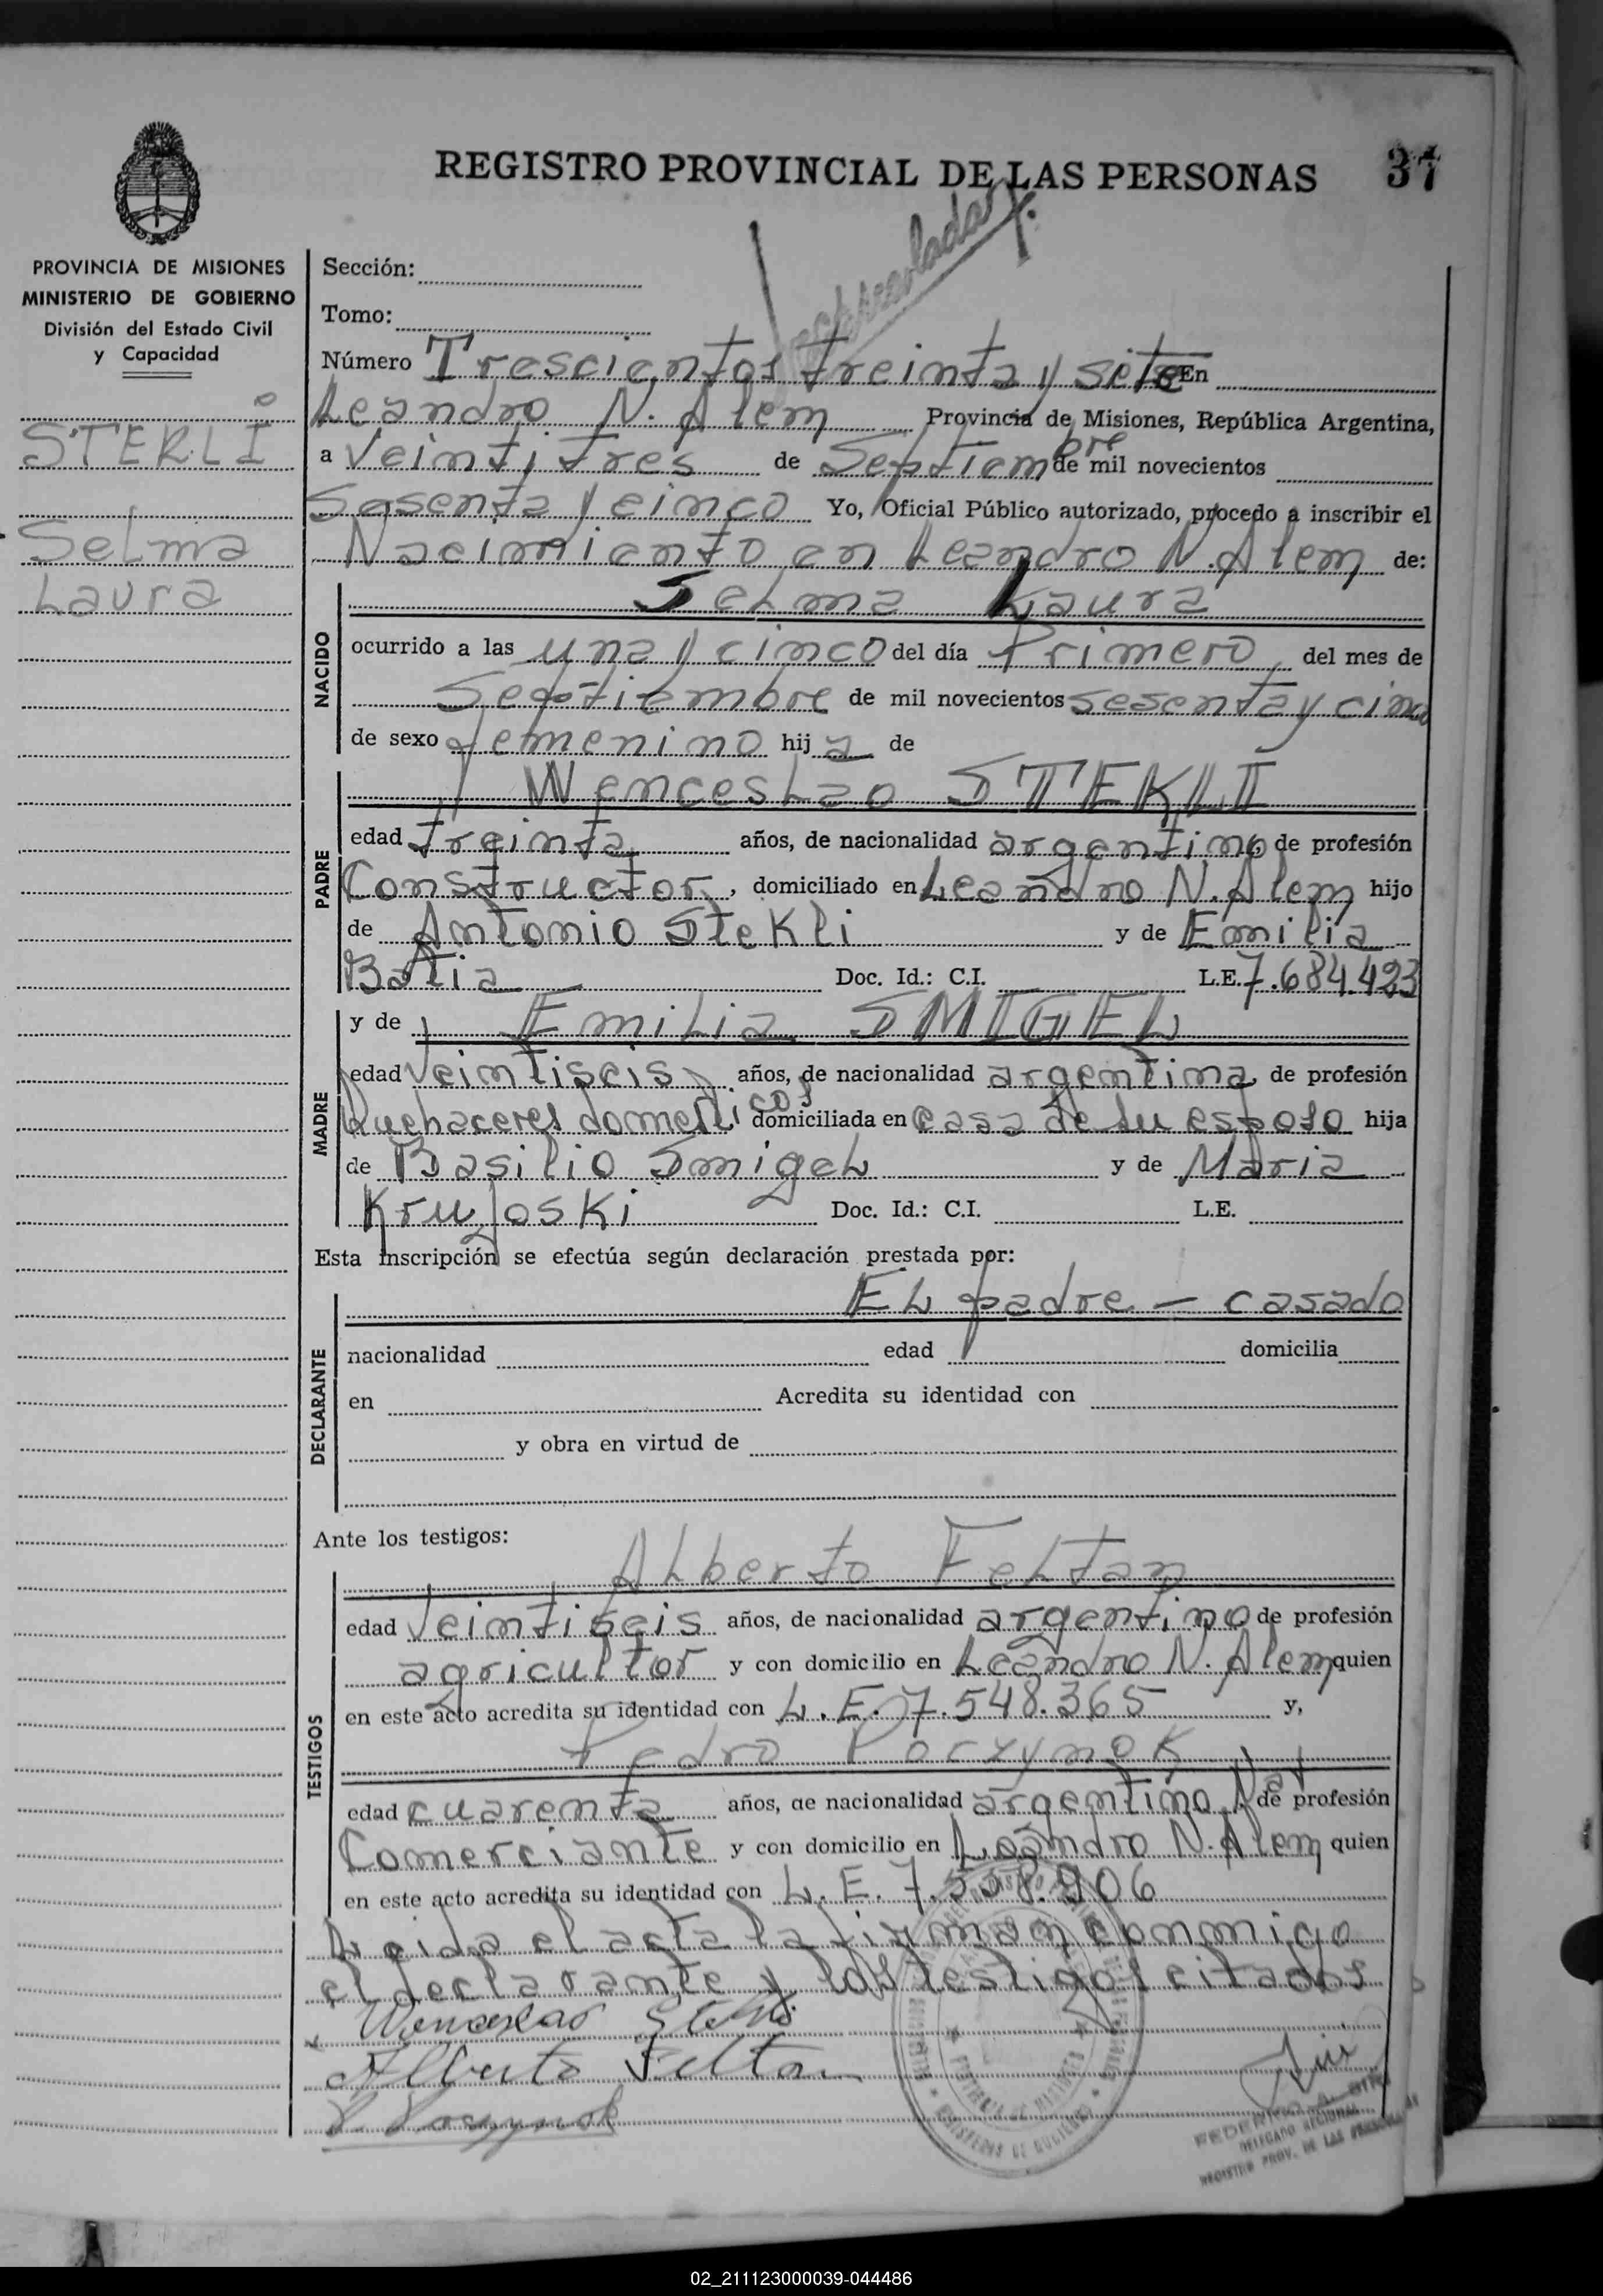 REGISTRO PROVINCIAL DE LAS PERSONAS 37
PROVINCIA DE MISIONES
MINISTERIO DE GOBIERNO
División del Estado Civil
y Capacidad
STERLI
Selma
Laura
Sección:
Tomo:
Número Trescientos treinta y siete En
Leandro N. Alem Provincia de Misiones, República Argentina,
a Veintitres de Septiembre de mil novecientos
Sesenta y cinco Yo, Oficial Público autorizado, procedo a inscribir el
Nacimiento en Leandro N. Alem de:
NACIDO
Selma Laura
ocurrido a las una y cinco del día Primero, del mes de
Septiembre de mil novecientos sesenta y cinco
de sexo femenino hija de
PADRE
Wenceslao STEKLI
edad treinta años, de nacionalidad argentino de profesión
Constructor, domiciliado en Leandro N. Alem hijo
de Antonio Stekli y de Emilia
Batia Doc. Id.: C.I. L.E. 7.684.423
MADRE
y de Emilia SMIGEL
edad Veintiseis años, de nacionalidad argentina, de profesión
Quehaceres domesticos domiciliada en casa de su esposo hija
de Basilio Smigel y de Maria
Krujoski Doc. Id.: C.I. L.E.
Esta inscripción se efectúa según declaración prestada por:
DECLARANTE
El padre - casado
nacionalidad edad domicilia
en Acredita su identidad con
y obra en virtud de
Ante los testigos:
TESTIGOS
Alberto Feltan
edad Veintiseis años, de nacionalidad argentino de profesión
agricultor y con domicilio en Leandro N. Alem quien
en este acto acredita su identidad con L.E. 7.548.365 y,
Pedro Poczynok
edad cuarenta años, de nacionalidad argentino Nat de profesión
Comerciante y con domicilio en Leandro N. Alem quien
en este acto acredita su identidad con L.E. 7.558.906
Leida el acta la firman conmigo
el declarante y los testigos citados
Wenceslao Stekli
Alberto Feltan
P. Poczynok
PROVINCIA DE MISIONES
MINISTERIO DE GOBIERNO
FEDERICO A.
DELEGADO REGIONAL
REGISTRO PROV. DE LAS PERSONAS
02_211123000039-044486